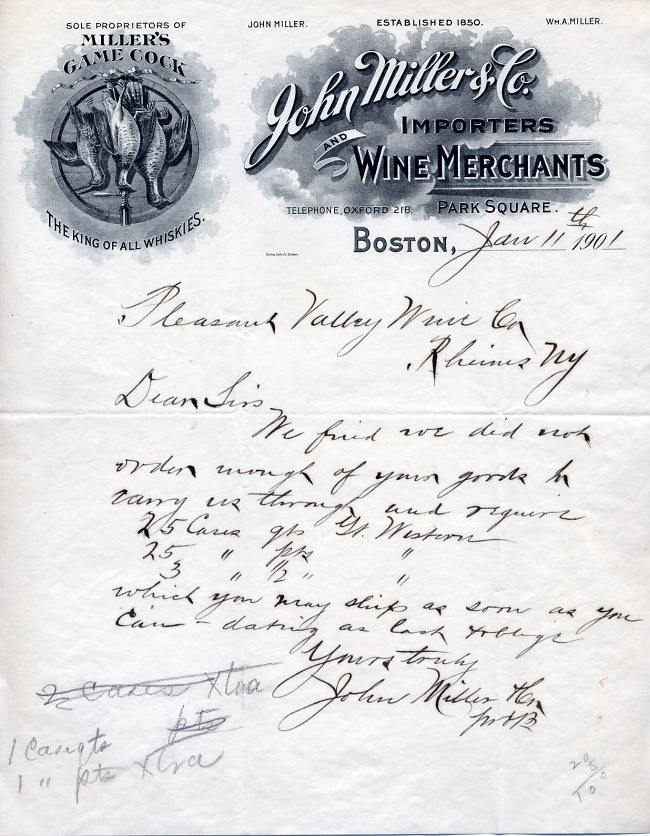 SOLE PROPRIETORS OF
MILLER'S
GAME COCK
THE KING OF ALL WHISKIES.
JOHN MILLER.
ESTABLISHED 1850.
WM. A. MILLER.
John Miller & Co.
IMPORTERS
AND
WINE MERCHANTS
TELEPHONE, OXFORD 218. PARK SQUARE.
BOSTON, Jan 11th 1901
Pleasant Valley Wine Co
Rheims NY
Dear Sirs
We find we did not
order enough of your goods to
carry us through and require
25 Cases qts Gt. Western
25 " pts "
3 " ½ " "
which you may ship as soon as you
can - dating as last & oblige
Yours truly
John Miller & Co
2 Cases Xtra
pts
1 Case qts
1 " pts Xtra